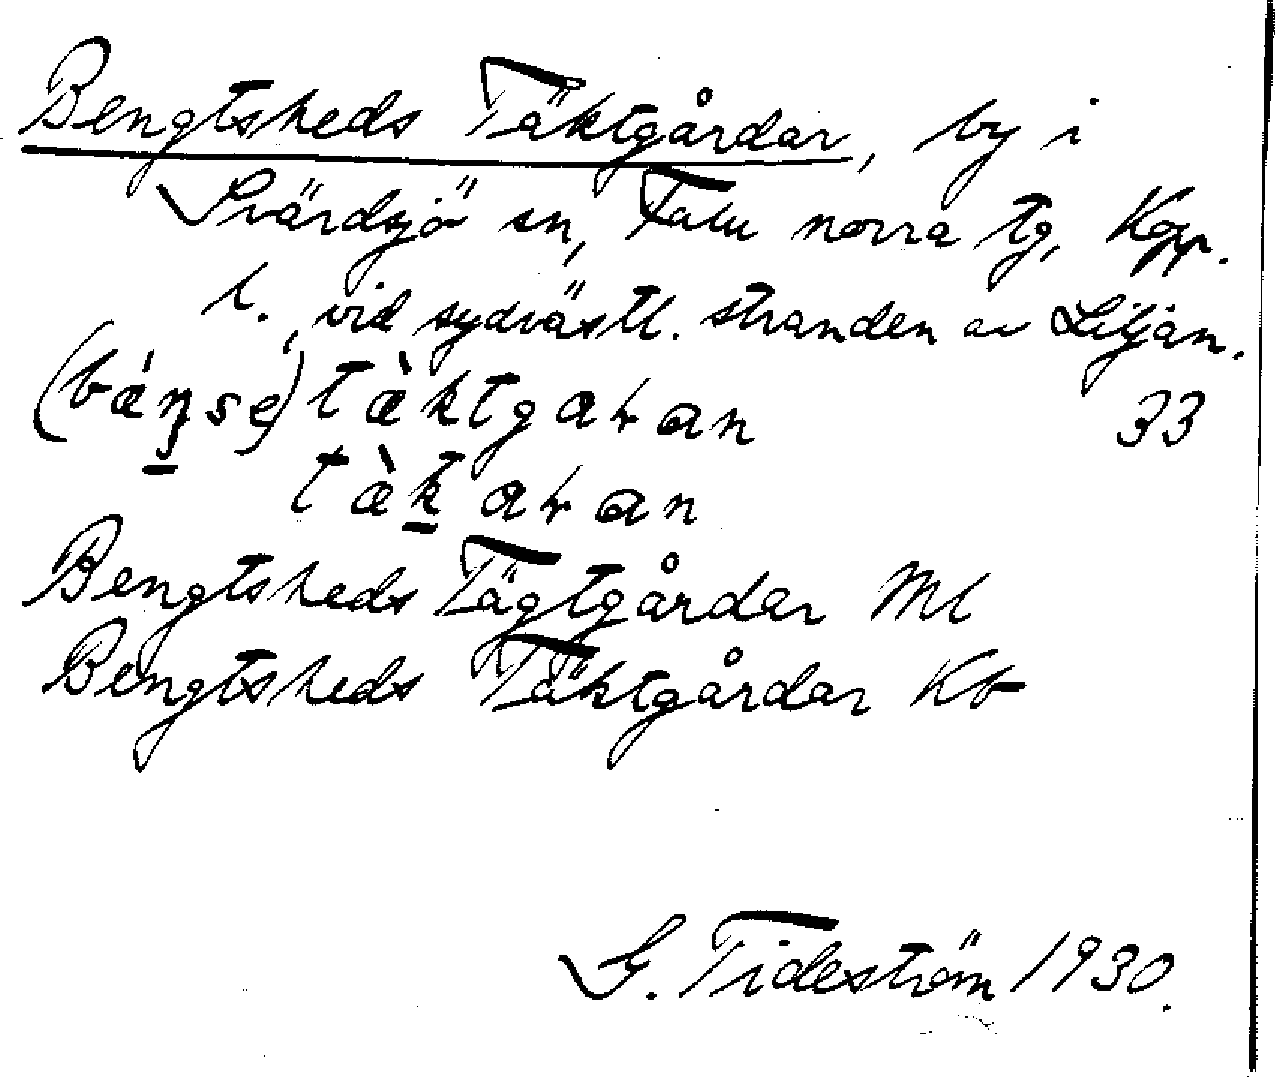 Bengtsheds Täktgårdar, by i
Svärdsjö sn, Falu norra tg, Kopp.
l., vid sydvästl. stranden av Liljan.
(báŋse) tàktgaran 33
tàkaran
Bengtsheds Tägtgårdar Ml
Bengtsheds Täktgårdar Kb
G. Tideström 1930.